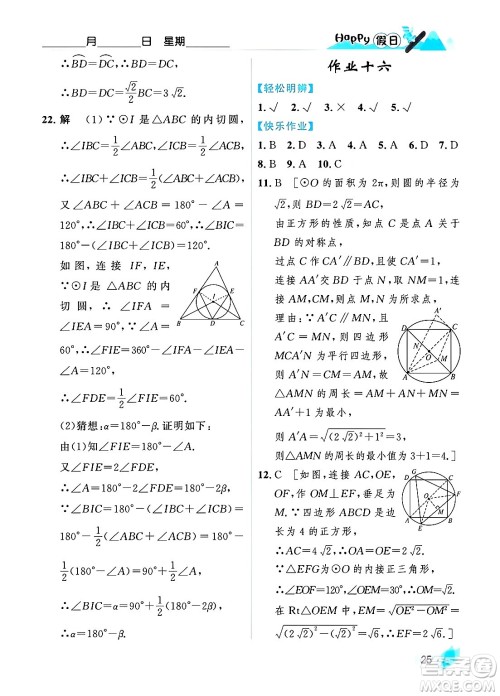 月 日 星期
Happy 假日
∴BD=DC,∴BD=DC.
∴BD=DC=√2/2 BC=3√2.
22. 解 (1)∵⊙I 是△ABC 的内切圆,
∴∠IBC=1/2∠ABC,∠ICB=1/2∠ACB,
∴∠IBC+∠ICB=1/2(∠ABC+∠ACB),
又∠ABC+∠ACB=180°-∠BAC=
120°,∴∠IBC+∠ICB=60°,∴∠BIC=
180°-(∠IBC+∠ICB)=120°.
如图,连接 IF,IE,
∵⊙I 是△ABC 的内
切圆,∴∠IFA=
∠IEA=90°,∵∠A=
60°,∴∠FIE=360°-∠IFA-∠IEA-
∠A=120°,
∴∠FDE=1/2∠FIE=60°.
(2)猜想:α=180°-2β.证明如下:
由(1)知∠FIE=2∠FDE,
∴α=180°-∠FIE=180°-2∠FDE=
180°-2β,
∴∠BIC=180°-(∠IBC+∠ICB)=
180°-1/2(∠ABC+∠ACB)=180°-
1/2(180°-α)=90°+1/2α,
∴∠BIC=90°+1/2(180°-2β)=
180°-β.
作业十六
【轻松明辨】
1. √ 2. √ 3. × 4. √ 5. √
【快乐作业】
1. B 2. D 3. B 4. A 5. B 6. D 7. D
8. B 9. A 10. C
11. B [⊙O 的面积为 2π,则圆的半径为
√2,则 BD=2√2=AC,
由正方形的性质,知点 C 是点 A 关于
BD 的对称点,
过点 C 作 CA′∥BD,且使 CA′=1,
连接 AA′交 BD 于点 N,取 NM=1,连
接 AM,CM,则点 M,N 为所求点,
∵A′C∥MN,且
A′C=MN,则四边形
MCA′N 为平行四边形,
则 A′N=CM=AM,
故△AMN 的周长=
AM+AN+MN=AA′+1 为最小,
则 A′A=√((2√2)²+1²)=3,
则△AMN 的周长的最小值为 3+1=4.]
12. C [如图,连接 AC,OE,
OF,作 OM⊥EF,垂足为
M,∵四边形 ABCD 是边
长为 4 的正方形,
∴AC=4√2,∴OE=OF=2√2,
∵△EFG为⊙O的内接正三角形,
∴∠EOF=120°,∴∠OEF=30°,
在 Rt△OEM 中,EM=√(OE²-OM²)=
√((2√2)²-(√2)²)=√6,∴EF=2√6.]
25